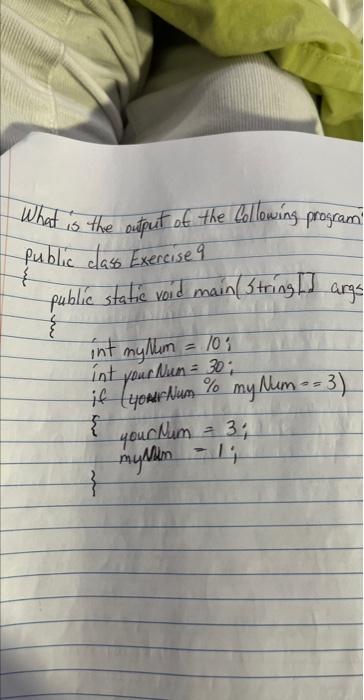 What is the output of the following program
public class Exercise9
{
public static void main(String[] args
{
int myNum = 10;
int yourNum = 30;
if (yourNum % myNum == 3)
{
yourNum = 3;
myNum = 1;
}